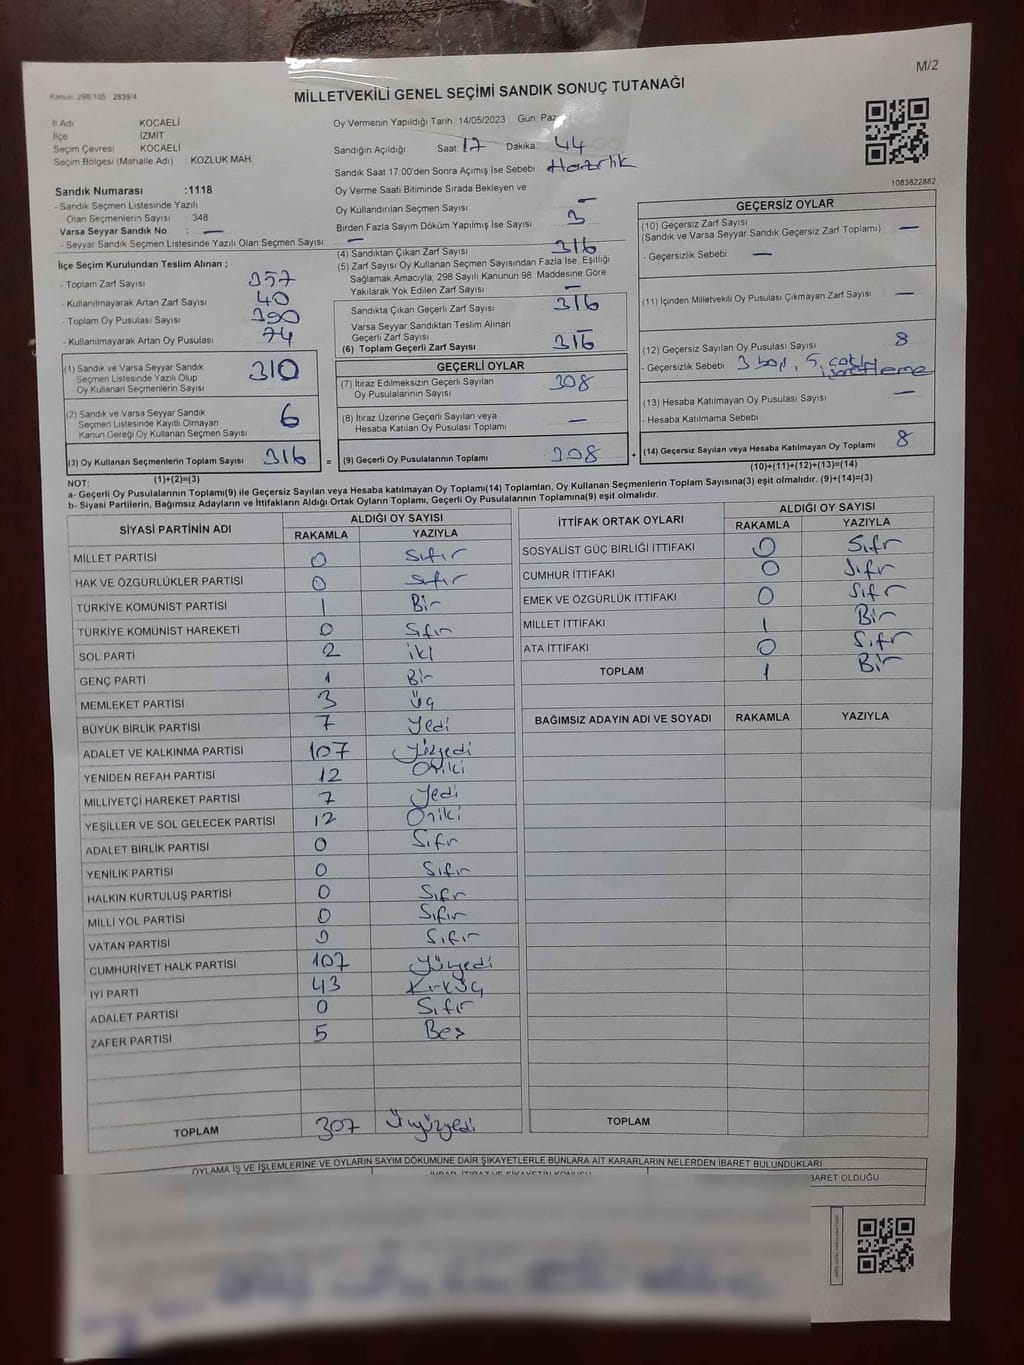 M/2
Kanun: 298/105 2839/4
MİLLETVEKİLİ GENEL SEÇİMİ SANDIK SONUÇ TUTANAĞI
İl Adı KOCAELİ
İlçe İZMİT
Seçim Çevresi KOCAELİ
Seçim Bölgesi (Mahalle Adı) : KOZLUK MAH.
Sandık Numarası :1118
- Sandık Seçmen Listesinde Yazılı
Olan Seçmenlerin Sayısı : 348
Varsa Seyyar Sandık No : —
- Seyyar Sandık Seçmen Listesinde Yazılı Olan Seçmen Sayısı: —
Oy Vermenin Yapıldığı Tarih :14/05/2023 Gün: Paz
Sandığın Açıldığı Saat: 17 Dakika: 44
Sandık Saat 17:00'den Sonra Açılmış İse Sebebi Hazırlık
Oy Verme Saati Bitiminde Sırada Bekleyen ve
Oy Kullandırılan Seçmen Sayısı —
Birden Fazla Sayım Döküm Yapılmış İse Sayısı : 3
1083822882
İlçe Seçim Kurulundan Teslim Alınan ;
- Toplam Zarf Sayısı 357
- Kullanılmayarak Artan Zarf Sayısı 40
- Toplam Oy Pusulası Sayısı 390
- Kullanılmayarak Artan Oy Pusulası 74
(1) Sandık ve Varsa Seyyar Sandık
Seçmen Listesinde Yazılı Olup
Oy Kullanan Seçmenlerin Sayısı 310
(2) Sandık ve Varsa Seyyar Sandık
Seçmen Listesinde Kayıtlı Olmayan
Kanun Gereği Oy Kullanan Seçmen Sayısı 6
(3) Oy Kullanan Seçmenlerin Toplam Sayısı 316 =
(1)+(2)=(3)
(4) Sandıktan Çıkan Zarf Sayısı 316
(5) Zarf Sayısı Oy Kullanan Seçmen Sayısından Fazla İse, Eşitliği
Sağlamak Amacıyla; 298 Sayılı Kanunun 98. Maddesine Göre
Yakılarak Yok Edilen Zarf Sayısı —
Sandıkta Çıkan Geçerli Zarf Sayısı 316
Varsa Seyyar Sandıktan Teslim Alınan
Geçerli Zarf Sayısı —
(6) Toplam Geçerli Zarf Sayısı 316
GEÇERLİ OYLAR
(7) İtiraz Edilmeksizin Geçerli Sayılan
Oy Pusulalarının Sayısı 308
(8) İtiraz Üzerine Geçerli Sayılan veya
Hesaba Katılan Oy Pusulası Toplamı —
(9) Geçerli Oy Pusulalarının Toplamı 308 +
GEÇERSİZ OYLAR
(10) Geçersiz Zarf Sayısı
(Sandık ve Varsa Seyyar Sandık Geçersiz Zarf Toplamı) —
- Geçersizlik Sebebi —
(11) İçinden Milletvekili Oy Pusulası Çıkmayan Zarf Sayısı —
(12) Geçersiz Sayılan Oy Pusulası Sayısı 8
- Geçersizlik Sebebi 3 boş, 5 çoklu
işaretleme
(13) Hesaba Katılmayan Oy Pusulası Sayısı —
- Hesaba Katılmama Sebebi
(14) Geçersiz Sayılan veya Hesaba Katılmayan Oy Toplamı 8
(10)+(11)+(12)+(13)=(14)
NOT:
a- Geçerli Oy Pusulalarının Toplamı(9) ile Geçersiz Sayılan veya Hesaba katılmayan Oy Toplamı(14) Toplamları, Oy Kullanan Seçmenlerin Toplam Sayısına(3) eşit olmalıdır. (9)+(14)=(3)
b- Siyasi Partilerin, Bağımsız Adayların ve İttifakların Aldığı Ortak Oyların Toplamı, Geçerli Oy Pusulalarının Toplamına(9) eşit olmalıdır.
SİYASİ PARTİNİN ADI ALDIĞI OY SAYISI
RAKAMLA YAZIYLA
MİLLET PARTİSİ 0 Sıfır
HAK VE ÖZGÜRLÜKLER PARTİSİ 0 Sıfır
TÜRKİYE KOMÜNİST PARTİSİ 1 Bir
TÜRKİYE KOMÜNİST HAREKETİ 0 Sıfır
SOL PARTİ 2 iki
GENÇ PARTİ 1 Bir
MEMLEKET PARTİSİ 3 Üç
BÜYÜK BİRLİK PARTİSİ 7 Yedi
ADALET VE KALKINMA PARTİSİ 107 Yüzyedi
YENİDEN REFAH PARTİSİ 12 Oniki
MİLLİYETÇİ HAREKET PARTİSİ 7 Yedi
YEŞİLLER VE SOL GELECEK PARTİSİ 12 Oniki
ADALET BİRLİK PARTİSİ 0 Sıfır
YENİLİK PARTİSİ 0 Sıfır
HALKIN KURTULUŞ PARTİSİ 0 Sıfır
MİLLİ YOL PARTİSİ 0 Sıfır
VATAN PARTİSİ 0 Sıfır
CUMHURİYET HALK PARTİSİ 107 Yüzyedi
İYİ PARTİ 43 Kırküç
ADALET PARTİSİ 0 Sıfır
ZAFER PARTİSİ 5 Beş
TOPLAM 307 Üçyüzyedi
İTTİFAK ORTAK OYLARI ALDIĞI OY SAYISI
RAKAMLA YAZIYLA
SOSYALİST GÜÇ BİRLİĞİ İTTİFAKI 0 Sıfır
CUMHUR İTTİFAKI 0 Sıfır
EMEK VE ÖZGÜRLÜK İTTİFAKI 0 Sıfır
MİLLET İTTİFAKI 1 Bir
ATA İTTİFAKI 0 Sıfır
TOPLAM 1 Bir
BAĞIMSIZ ADAYIN ADI VE SOYADI RAKAMLA YAZIYLA
TOPLAM
OYLAMA İŞ VE İŞLEMLERİNE VE OYLARIN SAYIM DÖKÜMÜNE DAİR ŞİKAYETLERLE BUNLARA AİT KARARLARIN NELERDEN İBARET BULUNDUKLARI
İHBAR, İTİRAZ VE ŞİKAYETİN KONUSU
BARET OLDUĞU